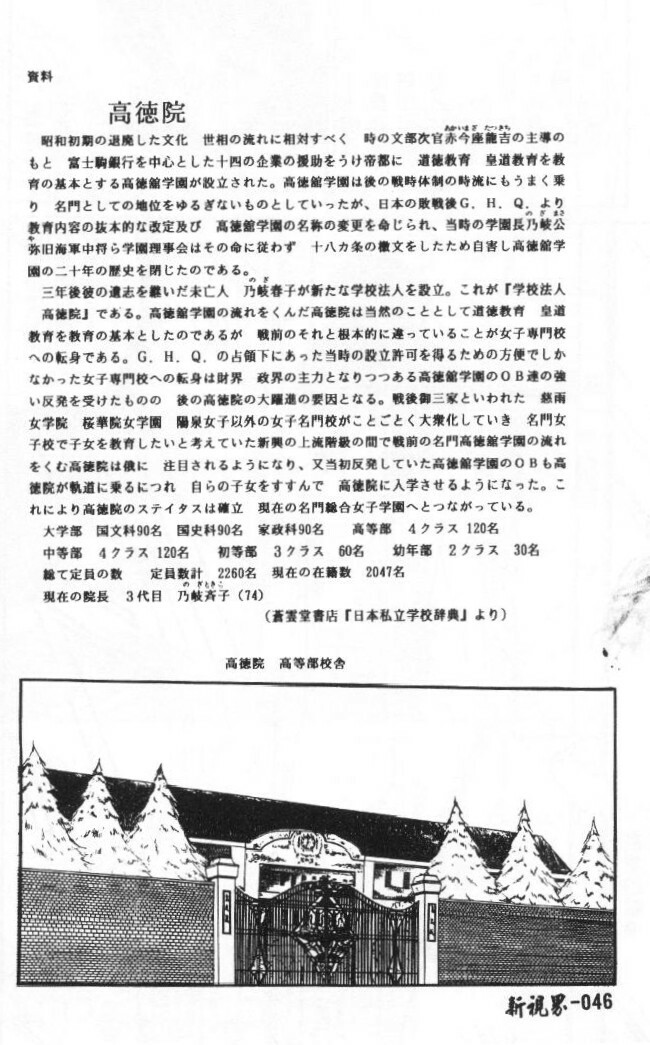 資料
高徳院
昭和初期の退廃した文化　世相の流れに相対すべく　時の文部次官赤今座龍吉の主導の
あかいまざ たつきち
もと　富士駒銀行を中心とした十四の企業の援助をうけ帝都に　道徳教育　皇道教育を教
育の基本とする高徳舘学園が設立された。高徳舘学園は後の戦時体制の時流にもうまく乗
り　名門としての地位をゆるぎないものとしていったが、日本の敗戦後G．H．Q．より
教育内容の抜本的な改定及び　高徳舘学園の名称の変更を命じられ、当時の学園長乃岐公
のぎまさ
弥旧海軍中将ら学園理事会はその命に従わず　十八カ条の檄文をしたため自害し高徳舘学
や
園の二十年の歴史を閉じたのである。
三年後彼の遺志を継いだ未亡人　乃岐春子が新たな学校法人を設立。これが『学校法人
のぎ
高徳院』である。高徳舘学園の流れをくんだ高徳院は当然のこととして道徳教育　皇道
教育を教育の基本としたのであるが　戦前のそれと根本的に違っていることが女子専門校
への転身である。G．H．Q．の占領下にあった当時の設立許可を得るための方便でしか
なかった女子専門校への転身は財界　政界の主力となりつつある高徳舘学園のOB達の強
い反発を受けたものの　後の高徳院の大躍進の要因となる。戦後御三家といわれた　慈雨
女学院　桜華院女学園　陽泉女子以外の女子名門校がことごとく大衆化していき　名門女
子校で子女を教育したいと考えていた新興の上流階級の間で戦前の名門高徳舘学園の流れ
をくむ高徳院は俄に　注目されるようになり、又当初反発していた高徳舘学園のOBも高
徳院が軌道に乗るにつれ　自らの子女をすすんで　高徳院に入学させるようになった。こ
れにより高徳院のステイタスは確立　現在の名門総合女子学園へとつながっている。
大学部　国文科90名　国史科90名　家政科90名　　高等部　4クラス 120名
中等部　4クラス 120名　　初等部　3クラス　60名　　幼年部　2クラス　30名
総て定員の数　　定員数計　2260名　現在の在籍数　2047名
現在の院長　3代目　乃岐斉子（74）
のぎときこ
（蒼雲堂書店『日本私立学校辞典』より）
高徳院　高等部校舎
新視界-046